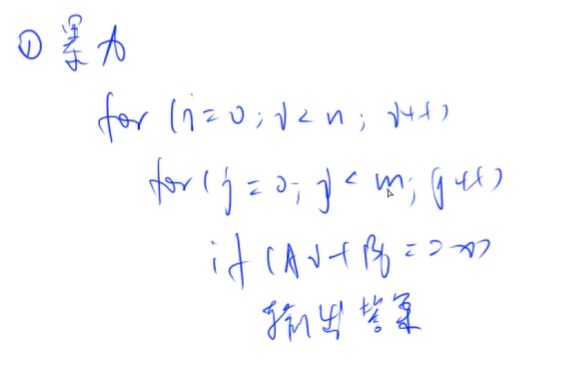 ① 暴力
for (i=0; i<n; i++)
for (j=0; j<m; j++)
if (Ai+Bj==x)
输出答案